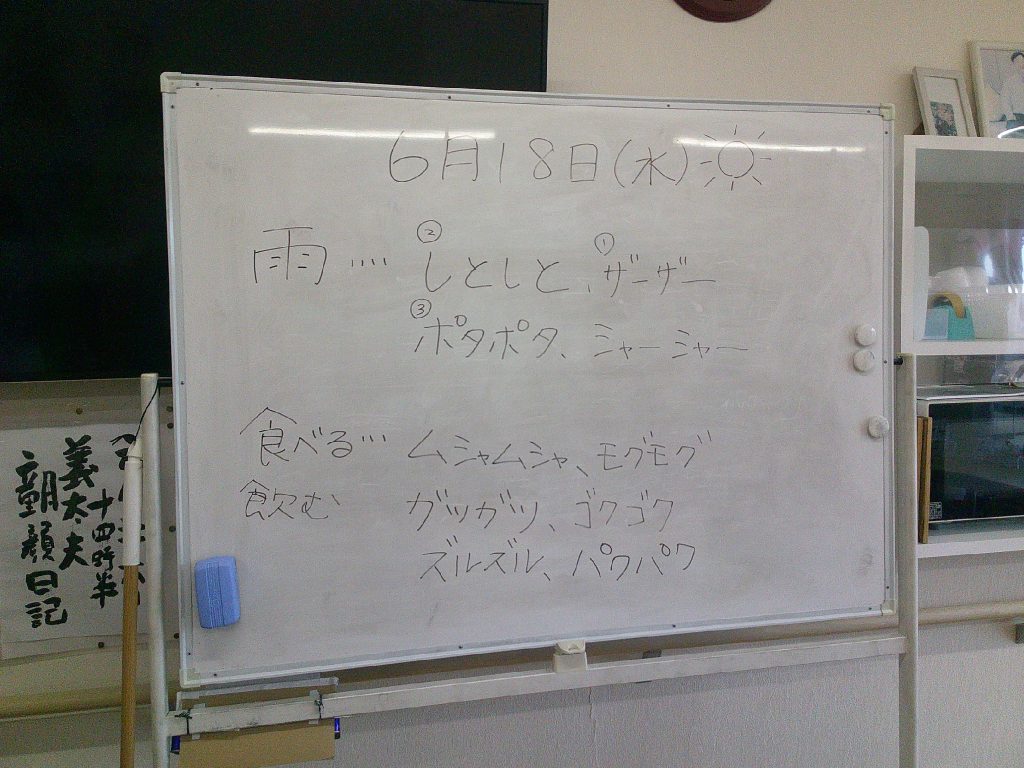 6月18日(水)
雨‥‥ ②しとしと、①ザーザー
③ポタポタ、シャーシャー
食べる… ムシャムシャ、モグモグ
飲む ガツガツ、ゴクゴク
ズルズル、パクパク
十四時半
義太夫
童顔日記